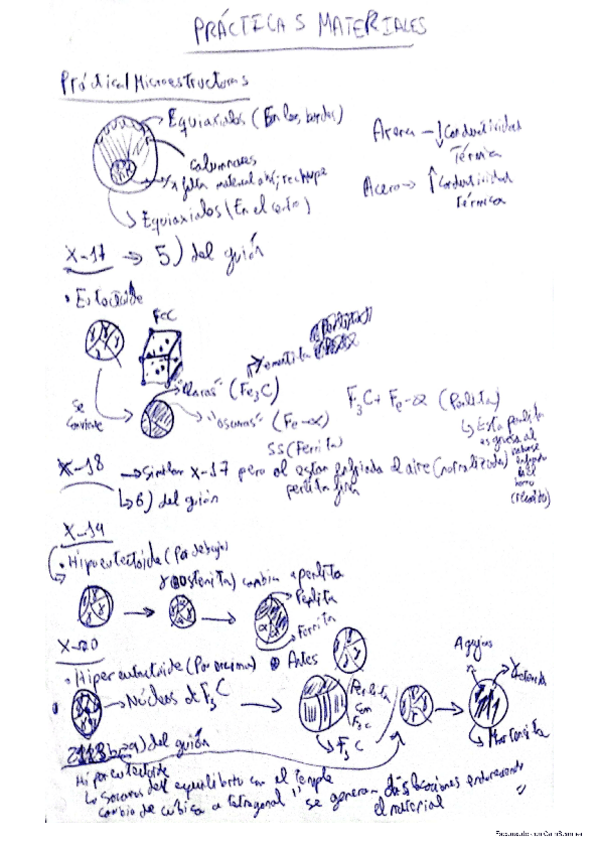 PRÁCTICAS MATERIALES
Práctica 1 Microestructuras
Equiaxiales (En los bordes)
Columnares
falta material ahí; rechupe
Equiaxiales (En el centro)
Arena → ↓ Conductividad
Térmica
Acero → ↑ Conductividad
Térmica
X-17 → 5) del guión
• Eutectoide
FeC
Se
convierte
"Claras" (Fe3C)
"oscuras" (Fe-α)
SS (Ferrita)
F3C + Fe-α (Perlita)
↳ Esta perlita
es gruesa al
enfriado
en el
horno
(recocido)
X-18 → Similar X-17 pero al estar enfriada al aire (normalizada)
perlita fina
↳ 6) del guión
X-19
• Hipoeutectoide (Por debajo)
γ (austenita) cambia a perlita
Perlita
Ferrita
X-20
• Hipereutectoide (Por encima)
Antes
→ Núcleos de F3C
Perlita
con
F3C
↳ F3C
Agujas
↳ Martensita
) del guión
Hipoeutectoide
↳ Sacamos del equilibrio con el temple
cambio de cúbica a tetragonal
se generan dislocaciones endureciendo
el material
Escaneado con CamScanner